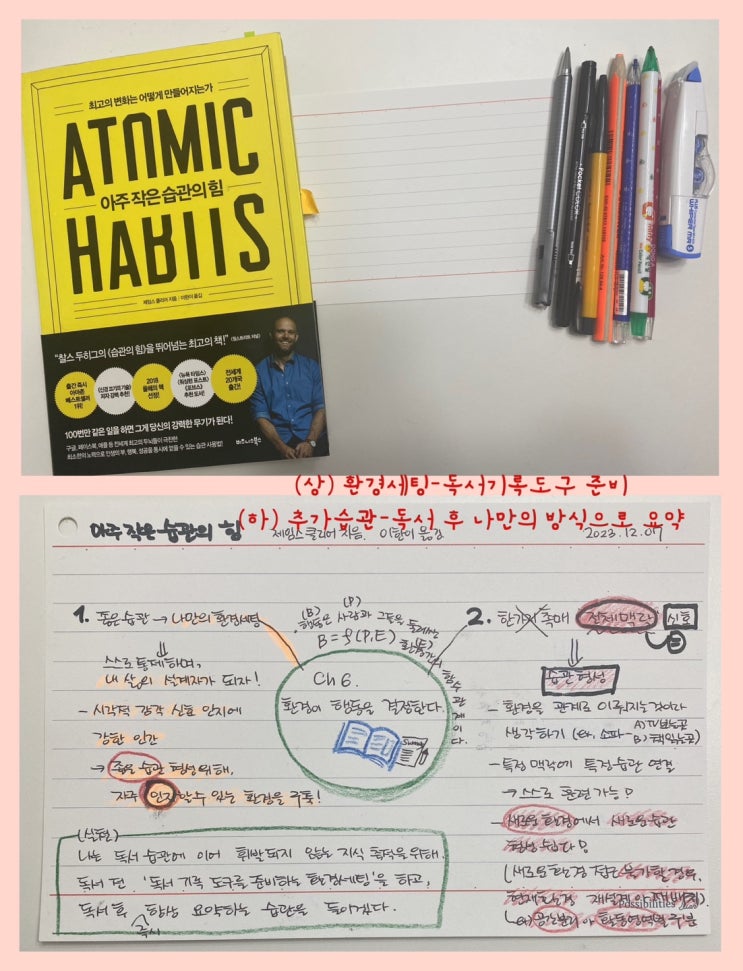 최고의 변화는 어떻게 만들어지는가
ATOMIC
아주 작은 습관의 힘
HABITS
제임스 클리어 지음 | 이한이 옮김
"찰스 두히그의 《습관의 힘》을 뛰어넘는 최고의 책!" (월스트리트 저널)
출간 즉시
아마존
베스트셀러
1위!
《신경 끄기의 기술》
저자 강력 추천!
2018
올해의 책
선정!
《뉴욕 타임스》
《포브스》
추천 도서!
전 세계
20개국
출간!
100번만 같은 일을 하면 그게 당신의 강력한 무기가 된다!
구글, 페이스북, 애플 등 전 세계 최고의 두뇌들이 극찬한
최소한의 노력으로 인생의 부, 행복, 성공을 동시에 얻을 수 있는 습관 사용법!
비즈니스북스
(상) 환경세팅-독서기록도구 준비
(하) 추가습관-독서 후 나만의 방식으로 요약
아주 작은 습관의 힘 제임스 클리어 지음. 이한이 옮김 2023.12.07
1. 좋은 습관 → 나만의 환경세팅
스스로 통제하며,
내 삶의 설계자가 되자!
- 시각적 감각 신호 인지에
강한 인간
→ 좋은 습관 형성 위해,
자주 인지할 수 있는 환경을 구축!
(B) (P)
행동은 사람과 그들을 둘러싼
B=f(P,E) 환경(E)
함수관계이다.
Ch 6.
환경이 행동을 결정한다.
Summary
2. 한가지 촉매 전체맥락 신호
습관 형성
- 환경을 관계로 이루어지는 것이라
생각하기 (ex. 소파- A)TV 보는 곳
B)책 읽는 곳)
- 특정 맥락에 특정습관 연결
→ 스스로 훈련 가능!
- 새로운 환경에서 새로운 습관
형성 쉽다!
(새로운 환경 접근 불가할 경우,
현재환경 재설계 & 재배치.
ex) 공간분리 & 활동영역별 구분
Possibilities
(실천)
나는 독서 습관에 이어 휘발되지 않는 지식 축적을 위해,
독서 전 '독서 기록 도구를 준비하는 환경세팅'을 하고,
독서 후 즉시 항상 요약하는 습관을 들이겠다.